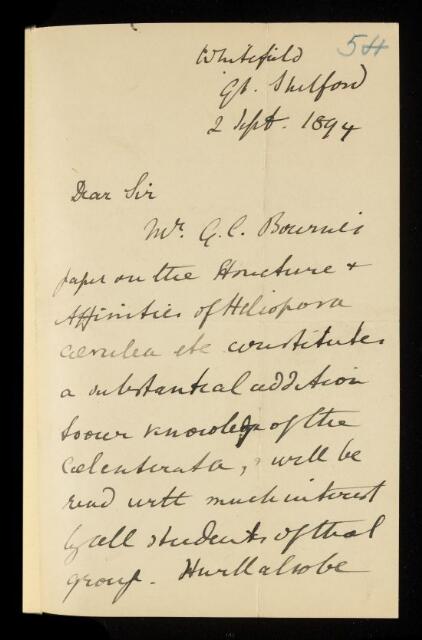 54
Whitefield
Gt. Shelford
2 Sept. 1894
Dear Sir
Mr. G. C. Bourne's
paper on the Structure +
Affinities of Heliopora
cœrulea etc constitutes
a substantial addition
to our knowledge of the
Cœlenterata, & will be
read with much interest
by all students of that
group. It will also be